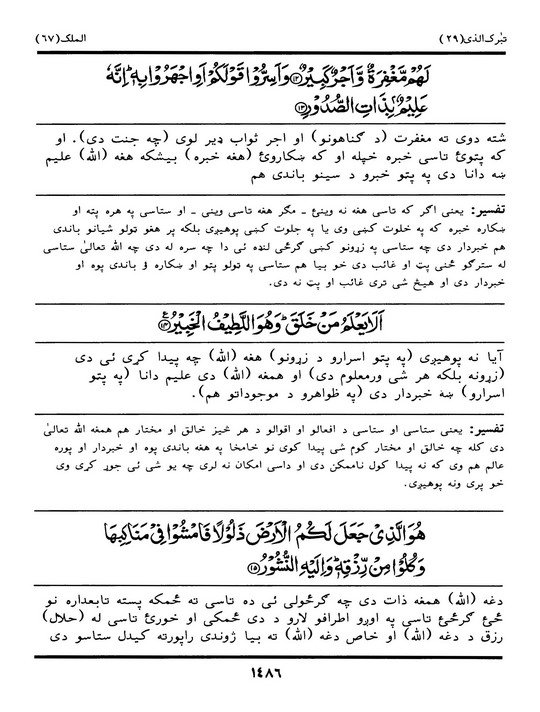 تبرك الذی (٢٩) الملك (٦٧)
لَهُمْ مَّغْفِرَةٌ وَّاَجْرٌ كَبِيْرٌ ﴿١٢﴾ وَاَسِرُّوْا قَوْلَكُمْ اَوِاجْهَرُوْا بِهٖ ؕ اِنَّهٗ
عَلِيْمٌۢ بِذَاتِ الصُّدُوْرِ ﴿١٣﴾
شته دوی ته مغفرت (د گناهونو) او اجر ثواب ډير لوی (چه جنت دی). او
که پتوئ تاسی خبره خپله او که ښکاروئ (هغه خبره) بيشکه هغه (الله) عليم
ښه دانا دی په پتو خبرو د سينو باندی هم
تفسير: يعنی اگر که تاسی هغه نه وينئ ــ مگر هغه تاسی وينی ــ او ستاسی په هره پته او
ښکاره خبره که په خلوت کښی وی يا په جلوت کښی پوهيږی بلکه پر هغو ټولو شيانو باندی
هم خبردار دی چه ستاسی په زړونو کښی گرځی لنډه ئی دا چه سره له دی چه الله تعالیٰ ستاسی
له سترگو ځنی پټ او غائب دی خو بيا هم ستاسی په ټولو پتو او ښکاره ؤ باندی پوه او
خبردار دی او هيڅ شی تری غائب او پټ نه دی.
اَلَا يَعْلَمُ مَنْ خَلَقَ ؕ وَهُوَ اللَّطِيْفُ الْخَبِيْرُ ﴿١٤﴾
آيا نه پوهيږی (په پتو اسرارو د زړونو) هغه (الله) چه پيدا کړی ئی دی
(زړونه بلکه هر شی ورمعلوم دی) او همغه (الله) دی عليم دانا (په پتو
اسرارو) ښه خبردار دی (په ظواهرو د موجوداتو هم).
تفسير: يعنی ستاسی او ستاسی د افعالو او اقوالو د هر څيز خالق او مختار هم همغه الله تعالیٰ
دی کله چه خالق او مختار کوم شی پيدا کوی نو خامخا په هغه باندی پوه او خبردار او پوره
عالم هم وی که نه پيدا کول ناممکن دی او داسی امکان نه لری چه يو شی ئی جوړ کړی وی
خو پری ونه پوهيږی.
هُوَ الَّذِیْ جَعَلَ لَكُمُ الْاَرْضَ ذَلُوْلًا فَامْشُوْا فِیْ مَنَاكِبِهَا
وَكُلُوْا مِنْ رِّزْقِهٖ ؕ وَاِلَيْهِ النُّشُوْرُ ﴿١٥﴾
دغه (الله) همغه ذات دی چه گرځولی ئی ده تاسی ته ځمکه پسته تابعداره نو
ځی گرځئ تاسی په اوږو اطرافو لارو د دی ځمکی او خورئ تاسی له (حلال)
رزق د دغه (الله) او خاص دغه (الله) ته بيا ژوندی راپورته کيدل ستاسو دی
١٤٨٦